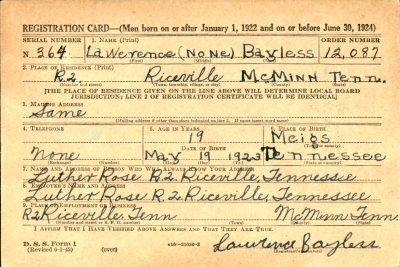 REGISTRATION CARD—(Men born on or after January 1, 1922 and on or before June 30, 1924)
SERIAL NUMBER 1. NAME (Print) ORDER NUMBER
N 364 Lawerence (None) Bayless 12,087
(First) (Middle) (Last)
2. PLACE OF RESIDENCE (Print)
R.2. Riceville McMinn Tenn.
(Number and street) (Town, township, village, or city) (County) (State)
[THE PLACE OF RESIDENCE GIVEN ON THE LINE ABOVE WILL DETERMINE LOCAL BOARD
JURISDICTION; LINE 2 OF REGISTRATION CERTIFICATE WILL BE IDENTICAL]
3. MAILING ADDRESS
Same
[Mailing address if other than place indicated on line 2. If same insert word same]
4. TELEPHONE 5. AGE IN YEARS 6. PLACE OF BIRTH
19 Meigs
DATE OF BIRTH (Town or county)
None May 19 1923 Tennessee
(Exchange) (Number) (Mo.) (Day) (Yr.) (State or country)
7. NAME AND ADDRESS OF PERSON WHO WILL ALWAYS KNOW YOUR ADDRESS
Luther Rose R.2. Riceville, Tennessee
8. EMPLOYER'S NAME AND ADDRESS
Luther Rose R.2. Riceville, Tennessee
9. PLACE OF EMPLOYMENT OR BUSINESS
R2 Riceville, Tenn McMinn Tenn.
(Number and street or R. F. D. number) (Town) (County) (State)
I AFFIRM THAT I HAVE VERIFIED ABOVE ANSWERS AND THAT THEY ARE TRUE.
D. S. S. Form 1
(Revised 6-9-42) (over) Lawrence Bayless